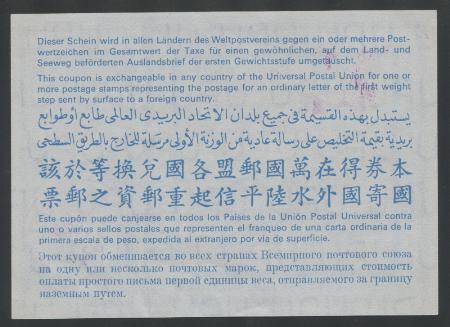 Dieser Schein wird in allen Ländern des Weltpostvereins gegen ein oder mehrere Post-
wertzeichen im Gesamtwert der Taxe für einen gewöhnlichen, auf dem Land- und
Seeweg beförderten Auslandsbrief der ersten Gewichtsstufe umgetauscht.
This coupon is exchangeable in any country of the Universal Postal Union for one or
more postage stamps representing the postage for an ordinary letter of the first weight
step sent by surface to a foreign country.
يستبدل بهذه القسيمة في جميع بلدان الاتحاد البريدى العالمى طابع أوطوابع
بريدية بقيمة التخليص على رسالة عادية من الوزنة الأولى مرسلة للخارج بالطريق السطحى
本券得在萬國郵盟各國兌換等於該
國寄國外水陸平信起重郵資之郵票
Este cupón puede canjearse en todos los Países de la Unión Postal Universal contra
uno o varios sellos postales que representen el franqueo de una carta ordinaria de la
primera escala de peso, expedida al extranjero por vía de superficie.
Этот купон обменивается во всех странах Всемирного почтового союза
на одну или несколько почтовых марок, представляющих стоимость
оплаты простого письма первой единицы веса, отправляемого за границу
наземным путем.